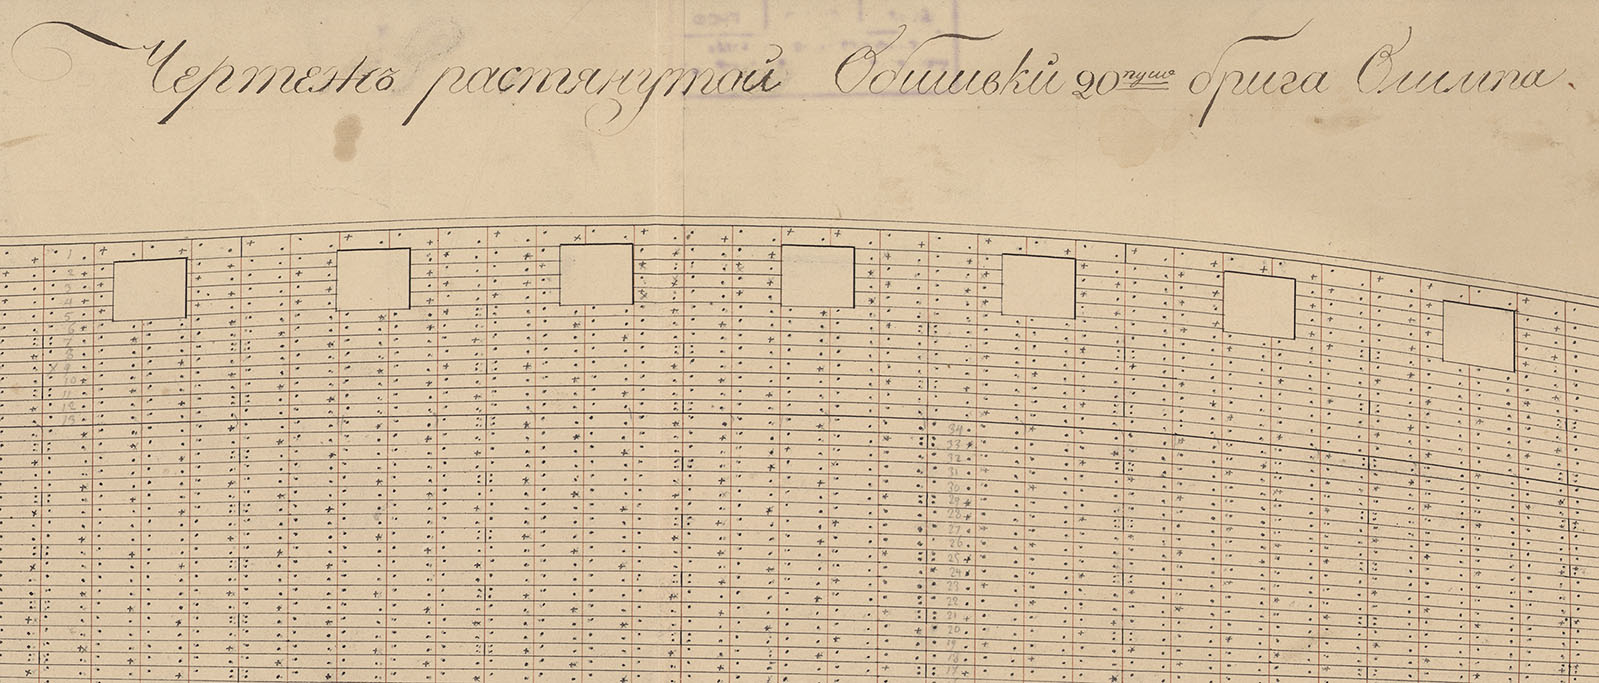 Чертежъ растянутой Обшивки 20 пуш. брига Олимпа.
1
2
3
4
5
6
7
8
9
10
11
12
13
34
33
32
31
30
29
28
27
26
25
24
23
22
21
20
19
18
17